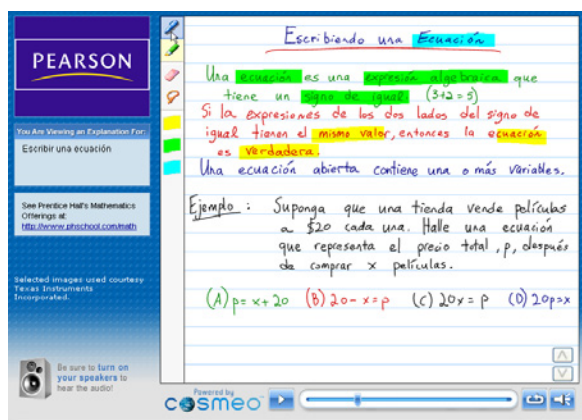 PEARSON
You Are Viewing an Explanation For:
Escribir una ecuación
See Prentice Hall's Mathematics
Offerings at:
http://www.phschool.com/math
Selected images used courtesy
Texas Instruments
Incorporated.
Be sure to turn on
your speakers to
hear the audio!
Escribiendo una Ecuación
Una ecuación es una expresión algebraica que
tiene un signo de igual (3+2=5)
Si la expresiones de los dos lados del signo de
igual tienen el mismo valor, entonces la ecuación
es verdadera.
Una ecuación abierta contiene una o más variables.
Ejemplo : Suponga que una tienda vende películas
a $20 cada una. Halle una ecuación
que representa el precio total, p, después
de comprar x películas.
(A) p = x + 20 (B) 20 - x = p (C) 20x = p (D) 20p=x
Powered by
cosmeo